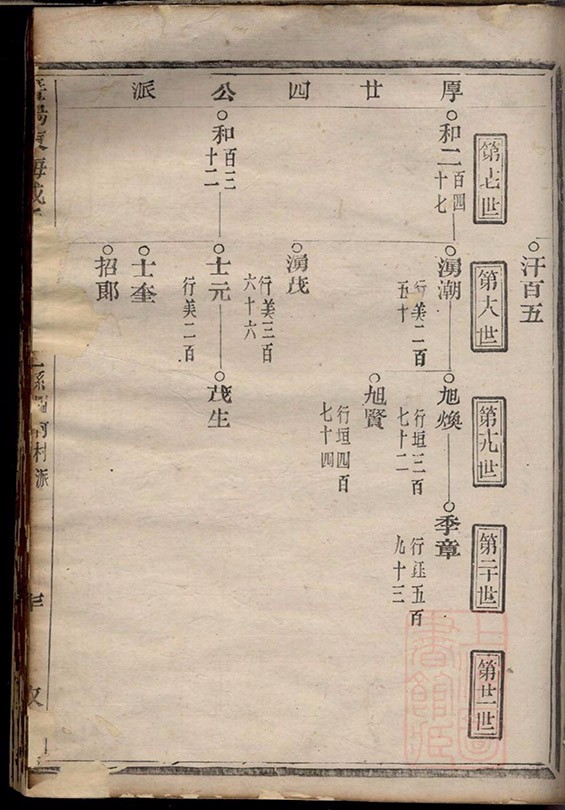 厚廿四公派
汗百五
第十七世
第十八世
第十九世
第二十世
第廿一世
和二
百四
十七
湧潮
行美二百
五十
旭煥
行垣三百
七十二
季章
行鈺五百
九十三
旭賢
行垣四百
七十四
湧茂
行美三百
六十六
和
百三
十二
士元
行美二百
茂生
士奎
招郎
河村派